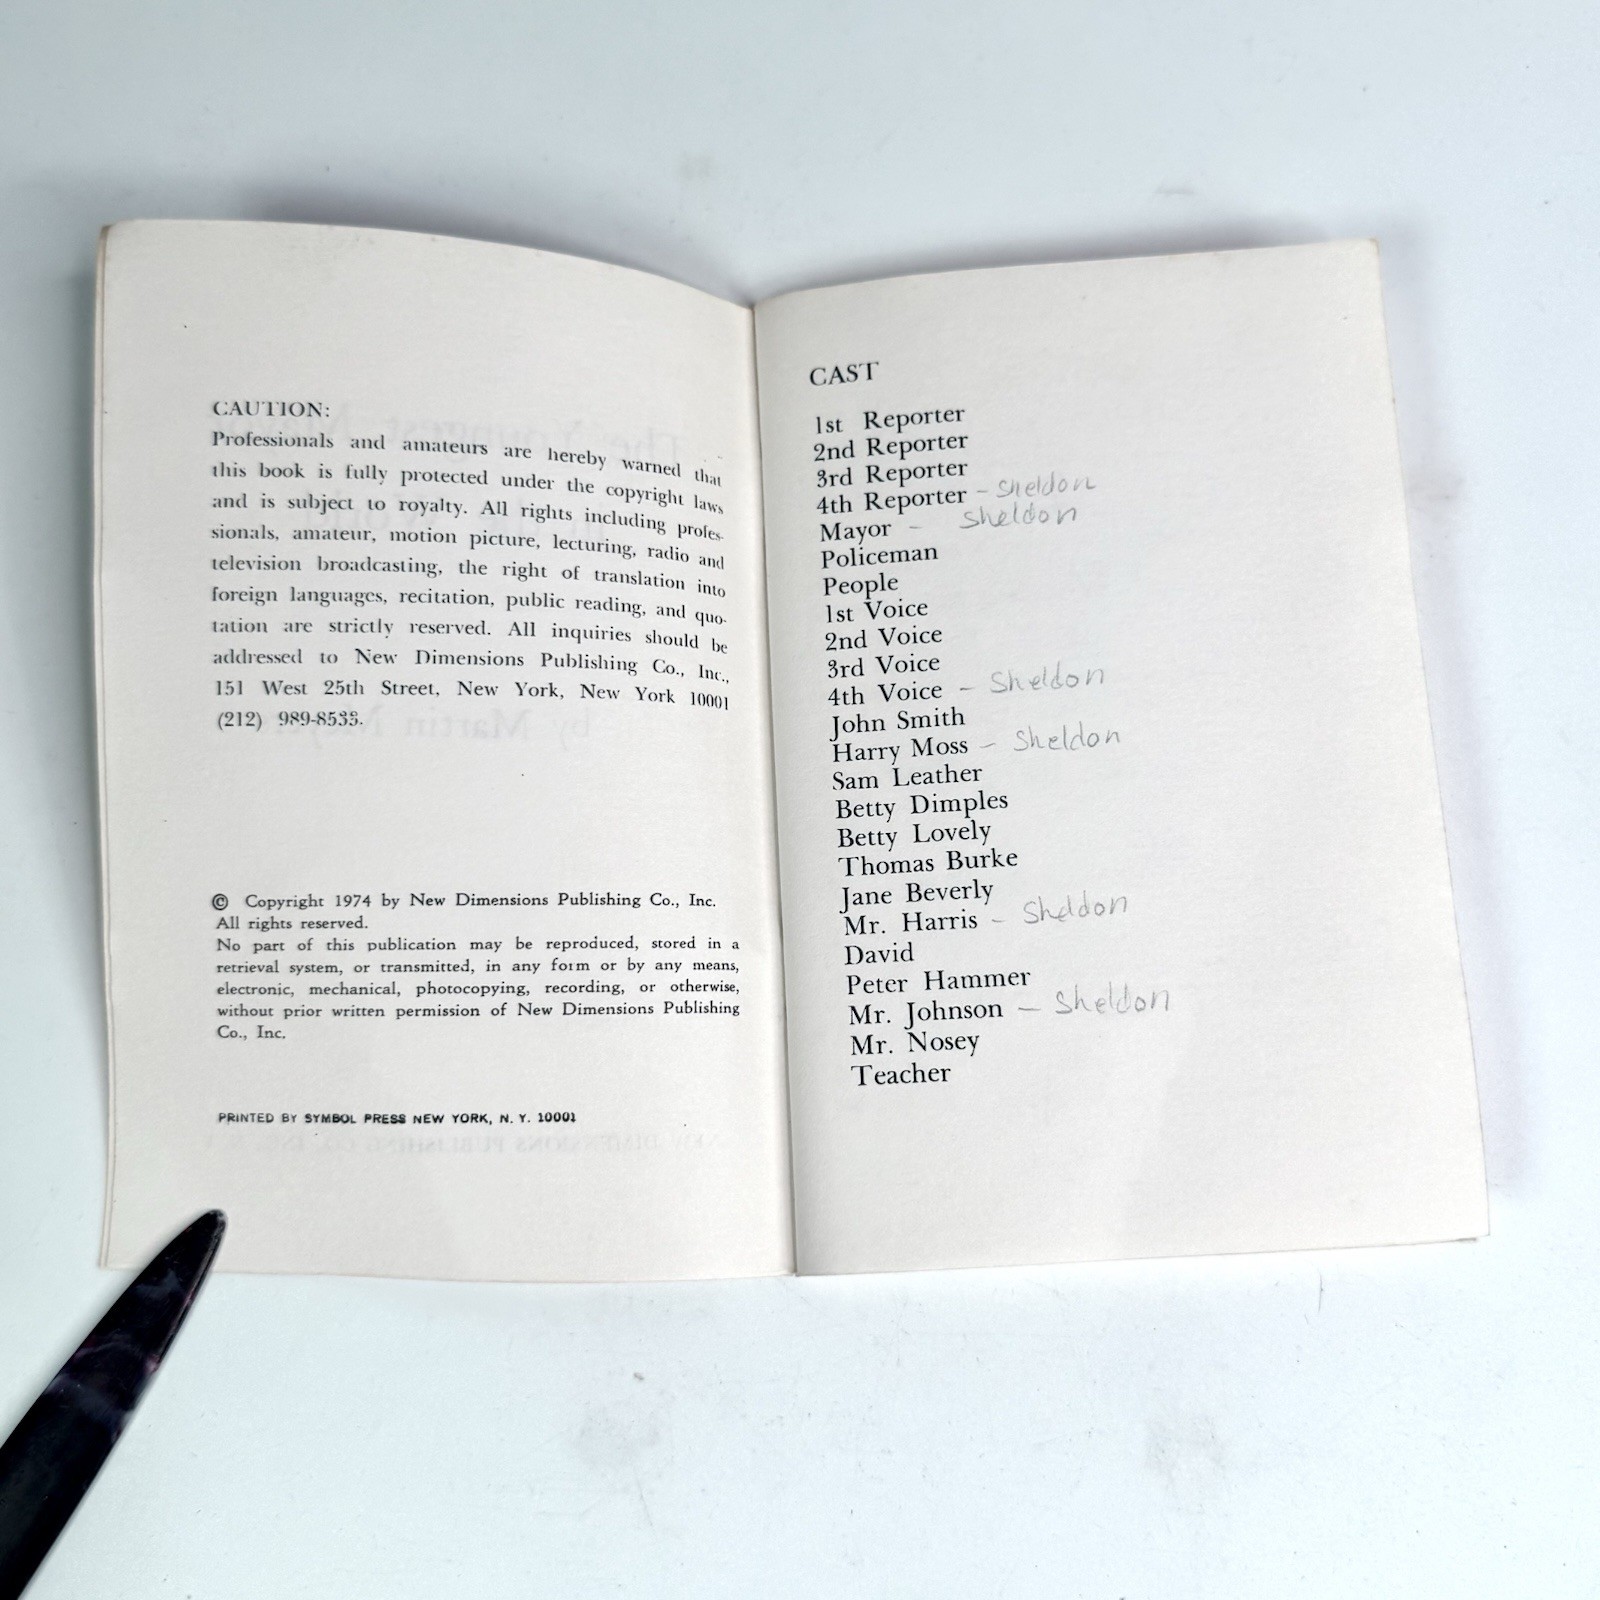 CAUTION:
Professionals and amateurs are hereby warned that
this book is fully protected under the copyright laws
and is subject to royalty. All rights including profes-
sionals, amateur, motion picture, lecturing, radio and
television broadcasting, the right of translation into
foreign languages, recitation, public reading, and quo-
tation are strictly reserved. All inquiries should be
addressed to New Dimensions Publishing Co., Inc.,
151 West 25th Street, New York, New York 10001
(212) 989-8533.
© Copyright 1974 by New Dimensions Publishing Co., Inc.
All rights reserved.
No part of this publication may be reproduced, stored in a
retrieval system, or transmitted, in any form or by any means,
electronic, mechanical, photocopying, recording, or otherwise,
without prior written permission of New Dimensions Publishing
Co., Inc.
PRINTED BY SYMBOL PRESS NEW YORK, N. Y. 10001
CAST
1st Reporter
2nd Reporter
3rd Reporter
4th Reporter - Sheldon
Mayor - Sheldon
Policeman
People
1st Voice
2nd Voice
3rd Voice
4th Voice - Sheldon
John Smith
Harry Moss - Sheldon
Sam Leather
Betty Dimples
Betty Lovely
Thomas Burke
Jane Beverly
Mr. Harris - Sheldon
David
Peter Hammer
Mr. Johnson - Sheldon
Mr. Nosey
Teacher